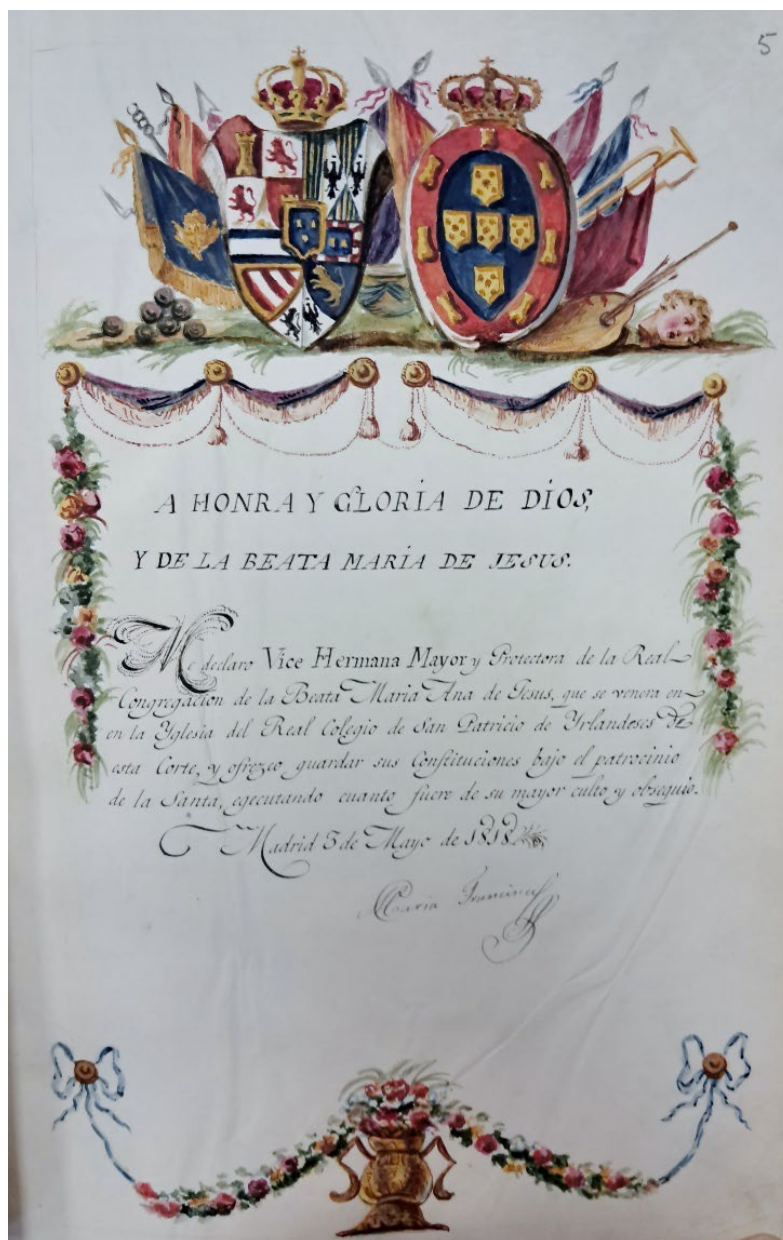 5
A HONRA Y GLORIA DE DIOS,
Y DE LA BEATA MARIA DE JESUS.
Me declaro Vice Hermana Mayor y Protectora de la Real
Congregacion de la Beata Maria Ana de Jesus, que se venera en
en la Yglesia del Real Colegio de San Patricio de Yrlandeses de
esta Corte, y ofrezco guardar sus Constituciones bajo el patrocinio
de la Santa, egecutando cuanto fuere de su mayor culto y obsequio.
Madrid 3 de Mayo de 1818
Maria Francisca